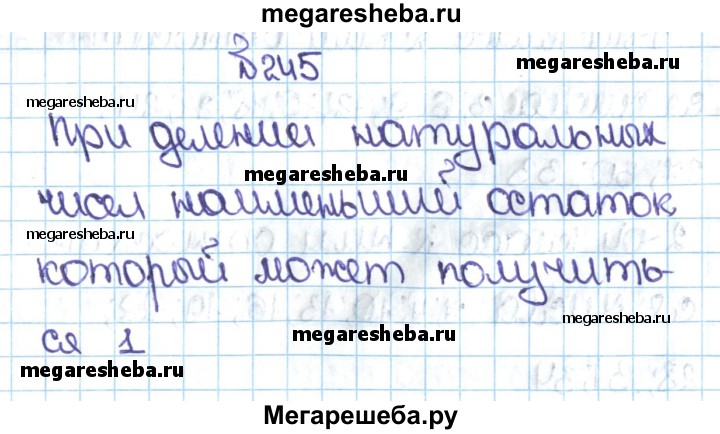 megaresheba.ru
№245
megaresheba.ru
megaresheba.ru
При делении натуральных
megaresheba.ru
чисел наименьший остаток
megaresheba.ru
который может получить-
megaresheba.ru
megaresheba.ru
ся 1
megaresheba.ru
Мегарешеба.ру